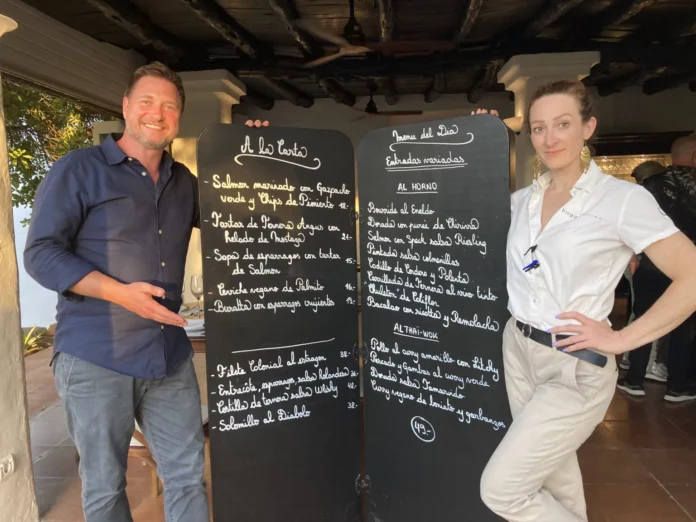 A la Carta
- Salmon marinado con Gazpacho
verde y Chips de Pimiento 18.-
- Tartar de Ternera Angus con
helado de Mostaza 21.-
- Sopa de esparragos con tartar
de Salmon 15.-
- Ceviche vegano de Palmito 16.-
- Burratta con esparragos crujientes 19.-
- Filete Colonial al estragon 38.-
- Entrecôte, esparrago, salsa holandesa
- Costilla de ternera salsa Whisky 42.-
- Solomillo al Diabolo 38.-
Menu del Dia
Entradas variadas
AL HORNO
Dorada con pure de Chirivia
Salmon con Speck salsa Riesling
Pintada salsa colmenillas
Costillo de Cordero y Polenta
Carrillada de Ternera al vino tinto
"Chuleton" de Coliflor
Bacalao con risotto y Remolacha
AL THAI-WOK
Pollo al curry amarillo con Litchy
Pescado y Gambas al curry verde
Dorada salsa Tamarindo
Curry vegano de boniato y garbanzos
49.-